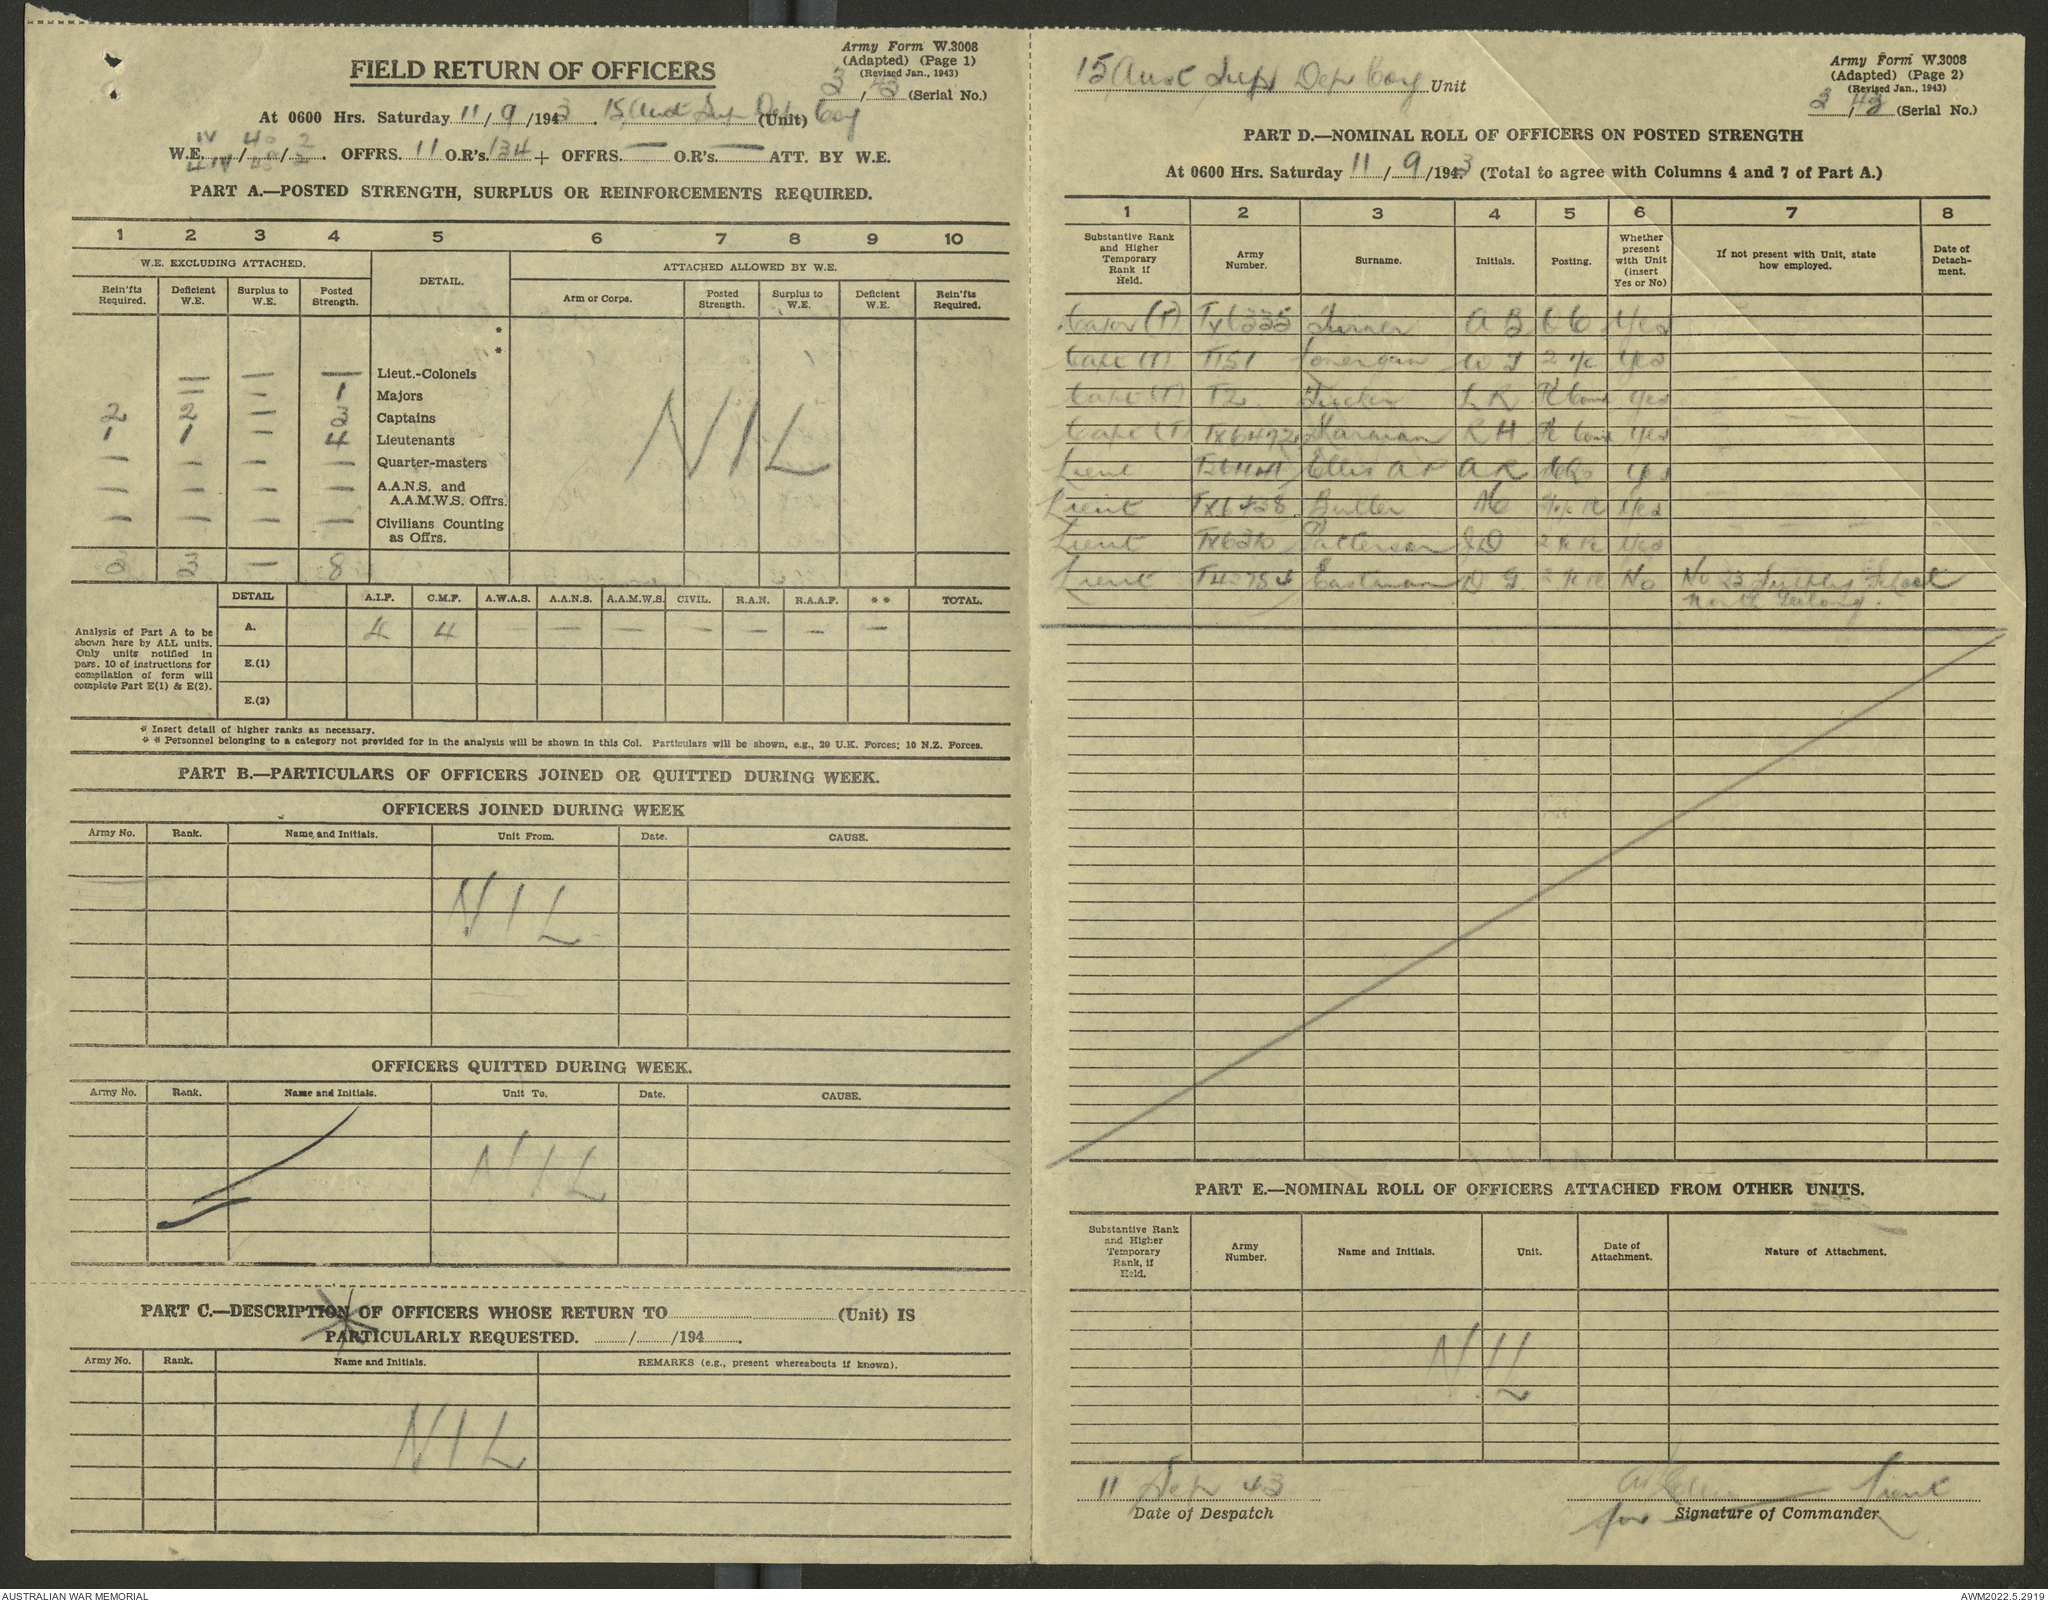 Army Form W.3008
(Adapted) (Page 1)
(Revised Jan., 1943)
3/43 (Serial No.)
FIELD RETURN OF OFFICERS
At 0600 Hrs. Saturday 11/9/1943. 15 Aust Sup Dep (Unit) Coy
IV 40 2
W.E. / / . OFFRS. 11 O.R's. 134 + OFFRS. — O.R's. — ATT. BY W.E.
PART A.—POSTED STRENGTH, SURPLUS OR REINFORCEMENTS REQUIRED.
1 2 3 4 5 6 7 8 9 10
W.E. EXCLUDING ATTACHED. DETAIL. ATTACHED ALLOWED BY W.E.
Rein'fts Required. Deficient W.E. Surplus to W.E. Posted Strength. Arm or Corps. Posted Strength. Surplus to W.E. Deficient W.E. Rein'fts Required.
*
*
— — — Lieut.-Colonels
— — 1 Majors
2 2 — 3 Captains
1 1 — 4 Lieutenants
— — — — Quarter-masters
— — — — A.A.N.S. and A.A.M.W.S. Offrs.
— — — — Civilians Counting as Offrs.
NIL
3 3 — 8
Analysis of Part A to be shown here by ALL units. Only units notified in para. 10 of instructions for compilation of form will complete Part E(1) & E(2).
DETAIL A.I.F. C.M.F. A.W.A.S. A.A.N.S. A.A.M.W.S. CIVIL. R.A.N. R.A.A.F. ** TOTAL.
A. 4 4 — — — — — — —
E.(1)
E.(2)
* Insert detail of higher ranks as necessary.
* * Personnel belonging to a category not provided for in the analysis will be shown in this Col. Particulars will be shown, e.g., 29 U.K. Forces; 10 N.Z. Forces.
PART B.—PARTICULARS OF OFFICERS JOINED OR QUITTED DURING WEEK.
OFFICERS JOINED DURING WEEK
Army No. Rank. Name and Initials. Unit From. Date. CAUSE.
NIL
OFFICERS QUITTED DURING WEEK.
Army No. Rank. Name and Initials. Unit To. Date. CAUSE.
NIL
PART C.—DESCRIPTION OF OFFICERS WHOSE RETURN TO (Unit) IS
PARTICULARLY REQUESTED. / /194 .
Army No. Rank. Name and Initials. REMARKS (e.g., present whereabouts if known).
NIL
Army Form W.3008
(Adapted) (Page 2)
(Revised Jan., 1943)
3/43 (Serial No.)
15 Aust Sup Dep Coy Unit
PART D.—NOMINAL ROLL OF OFFICERS ON POSTED STRENGTH
At 0600 Hrs. Saturday 11/9/1943 (Total to agree with Columns 4 and 7 of Part A.)
1 2 3 4 5 6 7 8
Substantive Rank and Higher Temporary Rank if Held. Army Number. Surname. Initials. Posting. Whether present with Unit (insert Yes or No) If not present with Unit, state how employed. Date of Detachment.
Major (T) TX6335 Turner A B O C Yes
Capt (T) T151 Lonergan W J 2 i/c Yes
Capt (T) T2 Tucker L R Pl Com Yes
Capt (T) TX6472 R H Pl Com Yes
Lieut Ellis A R A R Yes
Lieut TX6438 Butler Yes
Lieut Patterson J D Yes
Lieut Eastman D G No No 23 Supply School
North Geelong.
PART E.—NOMINAL ROLL OF OFFICERS ATTACHED FROM OTHER UNITS.
Substantive Rank and Higher Temporary Rank, if Held. Army Number. Name and Initials. Unit. Date of Attachment. Nature of Attachment.
NIL
11 Sep 43 Lieut
Date of Despatch for Signature of Commander
AUSTRALIAN WAR MEMORIAL AWM2022.5.2919